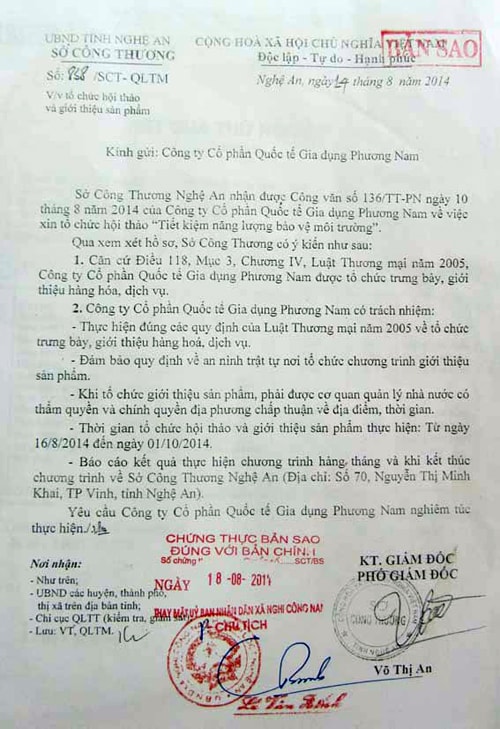 UBND TỈNH NGHỆ AN
SỞ CÔNG THƯƠNG
Số: /SCT- QLTM
V/v tổ chức hội thảo
và giới thiệu sản phẩm
CỘNG HOÀ XÃ HỘI CHỦ NGHĨA VIỆT NAM
Độc lập - Tự do - Hạnh phúc
BẢN SAO
Nghệ An, ngày 14 tháng 8 năm 2014
Kính gửi: Công ty Cổ phần Quốc tế Gia dụng Phương Nam
Sở Công Thương Nghệ An nhận được Công văn số 136/TT-PN ngày 10
tháng 8 năm 2014 của Công ty Cổ phần Quốc tế Gia dụng Phương Nam về việc
xin tổ chức hội thảo “Tiết kiệm năng lượng bảo vệ môi trường”.
Qua xem xét hồ sơ, Sở Công Thương có ý kiến như sau:
1. Căn cứ Điều 118, Mục 3, Chương IV, Luật Thương mại năm 2005,
Công ty Cổ phần Quốc tế Gia dụng Phương Nam được tổ chức trưng bày, giới
thiệu hàng hóa, dịch vụ.
2. Công ty Cổ phần Quốc tế Gia dụng Phương Nam có trách nhiệm:
- Thực hiện đúng các quy định của Luật Thương mại năm 2005 về tổ chức
trưng bày, giới thiệu hàng hoá, dịch vụ.
- Đảm bảo quy định về an ninh trật tự nơi tổ chức chương trình giới thiệu
sản phẩm.
- Khi tổ chức giới thiệu sản phẩm, phải được cơ quan quản lý nhà nước có
thẩm quyền và chính quyền địa phương chấp thuận về địa điểm, thời gian.
- Thời gian tổ chức hội thảo và giới thiệu sản phẩm thực hiện: Từ ngày
16/8/2014 đến ngày 01/10/2014.
- Báo cáo kết quả thực hiện chương trình hàng tháng và khi kết thúc
chương trình về Sở Công Thương Nghệ An (Địa chỉ: Số 70, Nguyễn Thị Minh
Khai, TP Vinh, tỉnh Nghệ An).
Yêu cầu Công ty Cổ phần Quốc tế Gia dụng Phương Nam nghiêm túc
thực hiện./.
CHỨNG THỰC BẢN SAO
ĐÚNG VỚI BẢN CHÍNH
Số chứng SCT/BS
NGÀY 18-08-2014
THAY MẶT UỶ BAN NHÂN DÂN XÃ NGHI CÔNG NAM
CHỦ TỊCH
Lê Văn Bính
Nơi nhận:
- Như trên;
- UBND các huyện, thành phố,
thị xã trên địa bàn tỉnh;
- Chi cục QLTT (kiểm tra, giám sát);
- Lưu: VT, QLTM.
KT. GIÁM ĐỐC
PHÓ GIÁM ĐỐC
SỞ
CÔNG THƯƠNG
Võ Thị An